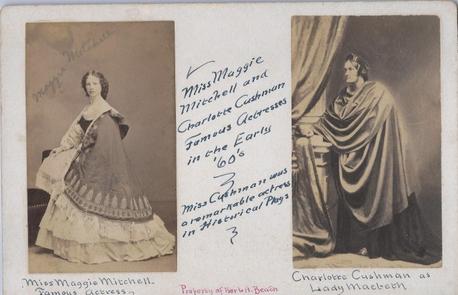 Maggie Mitchell
Miss Maggie
Mitchell and
Charlotte Cushman
Famous Actresses
in the Early
'60's
Miss Cushman was
a remarkable actress
in Historical Plays
Miss Maggie Mitchell.
Famous Actress
Charlotte Cushman as
Lady Macbeth
Property of